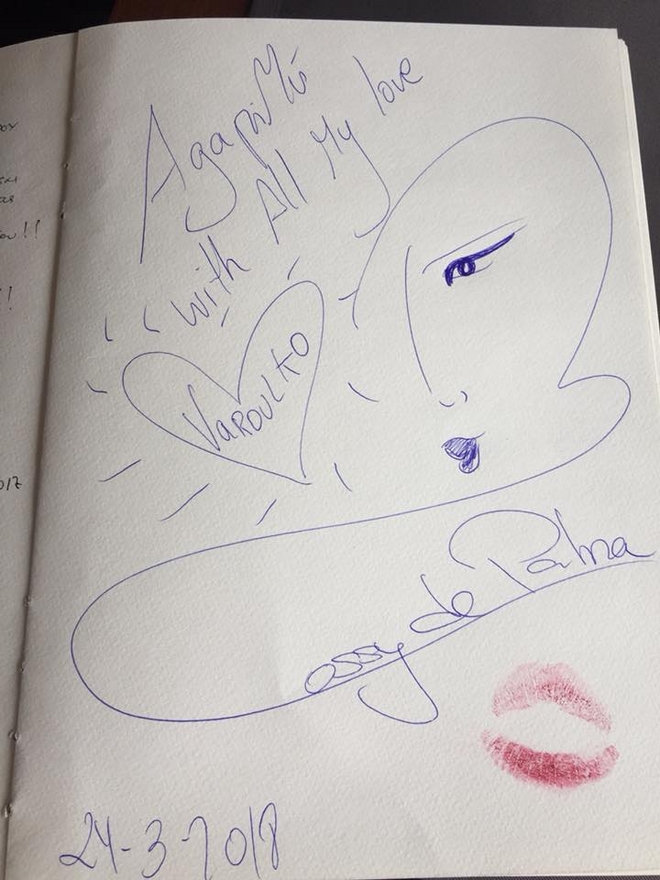 Agapi Mú
with All My love
VAROULKO
Cossy de Palma
24-3-2018
ou!!
!
017